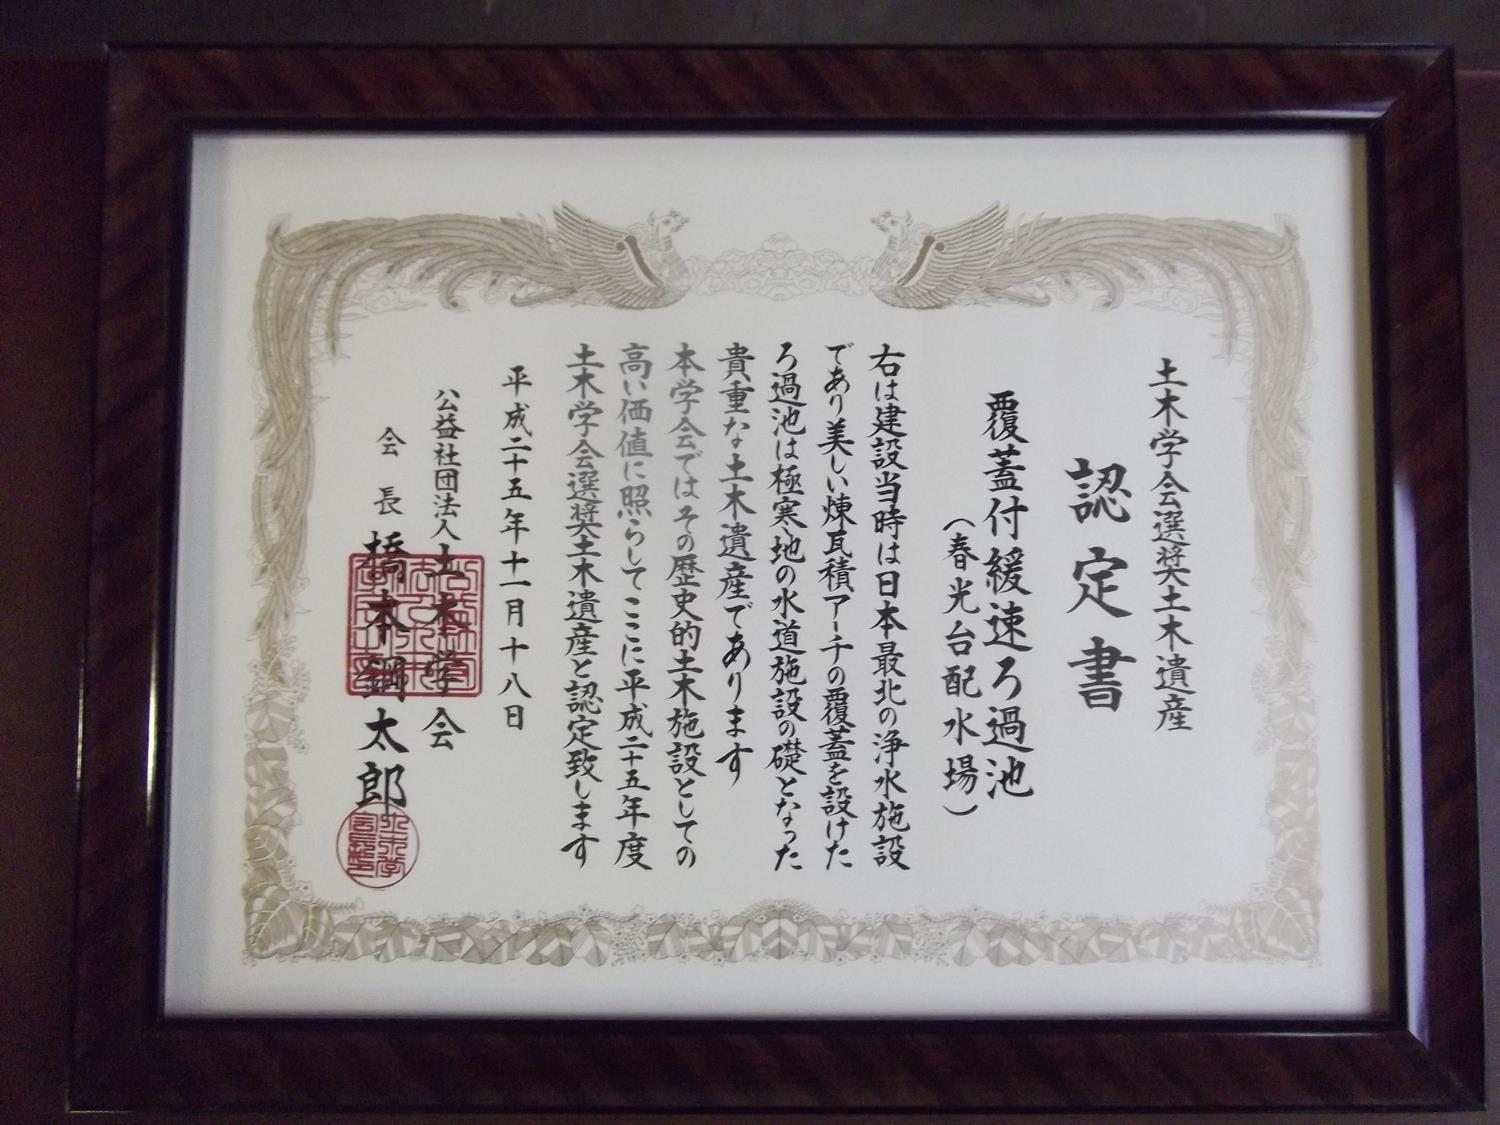 土木学会選奨土木遺産
認定書
覆蓋付緩速ろ過池
（春光台配水場）
右は建設当時は日本最北の浄水施設
であり美しい煉瓦積アーチの覆蓋を設けた
ろ過池は極寒地の水道施設の礎となった
貴重な土木遺産であります
本学会ではその歴史的土木施設としての
高い価値に照らしてここに平成二十五年度
土木学会選奨土木遺産と認定致します
平成二十五年十一月十八日
公益社団法人土木学会
会長 橋本鋼太郎